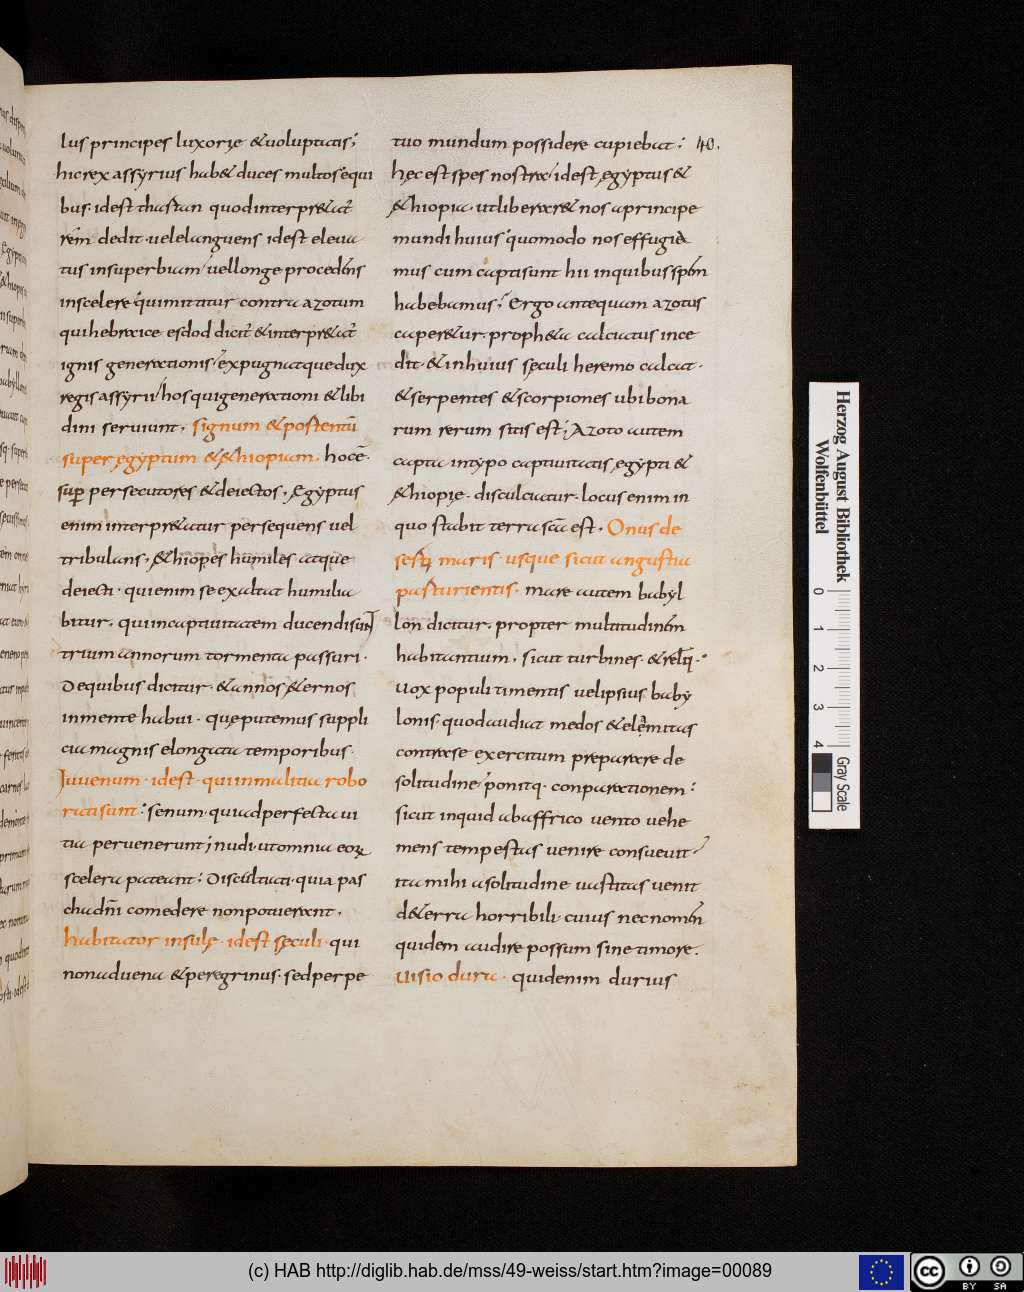 lus principes luxorię & uoluptatis;
hic rex assyrius hab& duces multos equi
bus· idest thastan quod interpr&at̄
rēm dedit· uel elanguens idest eleua
tus in superbiam uel longe procedēns
in scelere qui mittatur contra azotum
qui hebraice esdod dicit̄ & interpr&at̄
ignis generationis· expugnatque dux
regis assyrii hos qui generationi & libi
dini seruiunt· signum & postentū
super ęgyptum & &hiopiam· hoc ē·
sup̄ persecutores & deiectos· Ęgyptus
enim interpr&atur persequens uel
tribulans· &hiopes humiles atque
deiecti· qui enim se exaltat humilia
bitur· qui in captiuitatem ducendi sunt
trium annorum tormenta passuri·
De quibus dicitur· & annos &ernos
in mente habui· que putemus suppli
cia magnis elongata temporibus·
Iuuenum· idest· qui in malitia robo
rati sunt· senum· qui ad perfecta ui
tia peruenerunt nudi· ut omnia eoꝝ
scelera pateant; Discultiati· quia pas
cha dn̄i comedere non potuerant·
habitator insulę· idest sęculi· qui
non aduena & peregrinus· sed perpe
tuo mundum possidere cupiebat; 40.
hęc est spes nostra idest ęgyptus &
&hiopia· ut liberar& nos a principe
mundi huius quomodo nos effugie
mus cum capti sunt hii in quibus spēm
habebamus; Ergo antequam azotus
caper&ur· proph&a calciatus ince
dit· & in huius sęculi heremo calcat·
& serpentes & scorpiones ubi bona
rum rerum sitis est; Azoto autem
capta in typo captiuitatis ęgypti &
&hiopię· discalciatur· locus enim in
quo stabit terra sc̄a est· Onus de
serti maris· usque sicut angustia
pasturientis· mare autem babyl
lon dicitur· propter multitudinēm
habitantium· sicut turbines· & reliq·
Uox populi timentis uel ipsius baby
lonis· quod audiat medos & elemitas
contraxse exercitum preparare de
solitudine· ponitq· conparationem·
sicut inquid ab affrico uento uehe
mens tempestas uenire consueuit
ita mihi a solitudine uastitas uenit
d&erra horribili· cuius nec nomēn
quidem audire possum sine timore·
Uisio dura· quid enim durius
Herzog August Bibliothek
Wolfenbüttel
0 1 2 3 4
Gray Scale
(c) HAB http://diglib.hab.de/mss/49-weiss/start.htm?image=00089
cc
BY SA